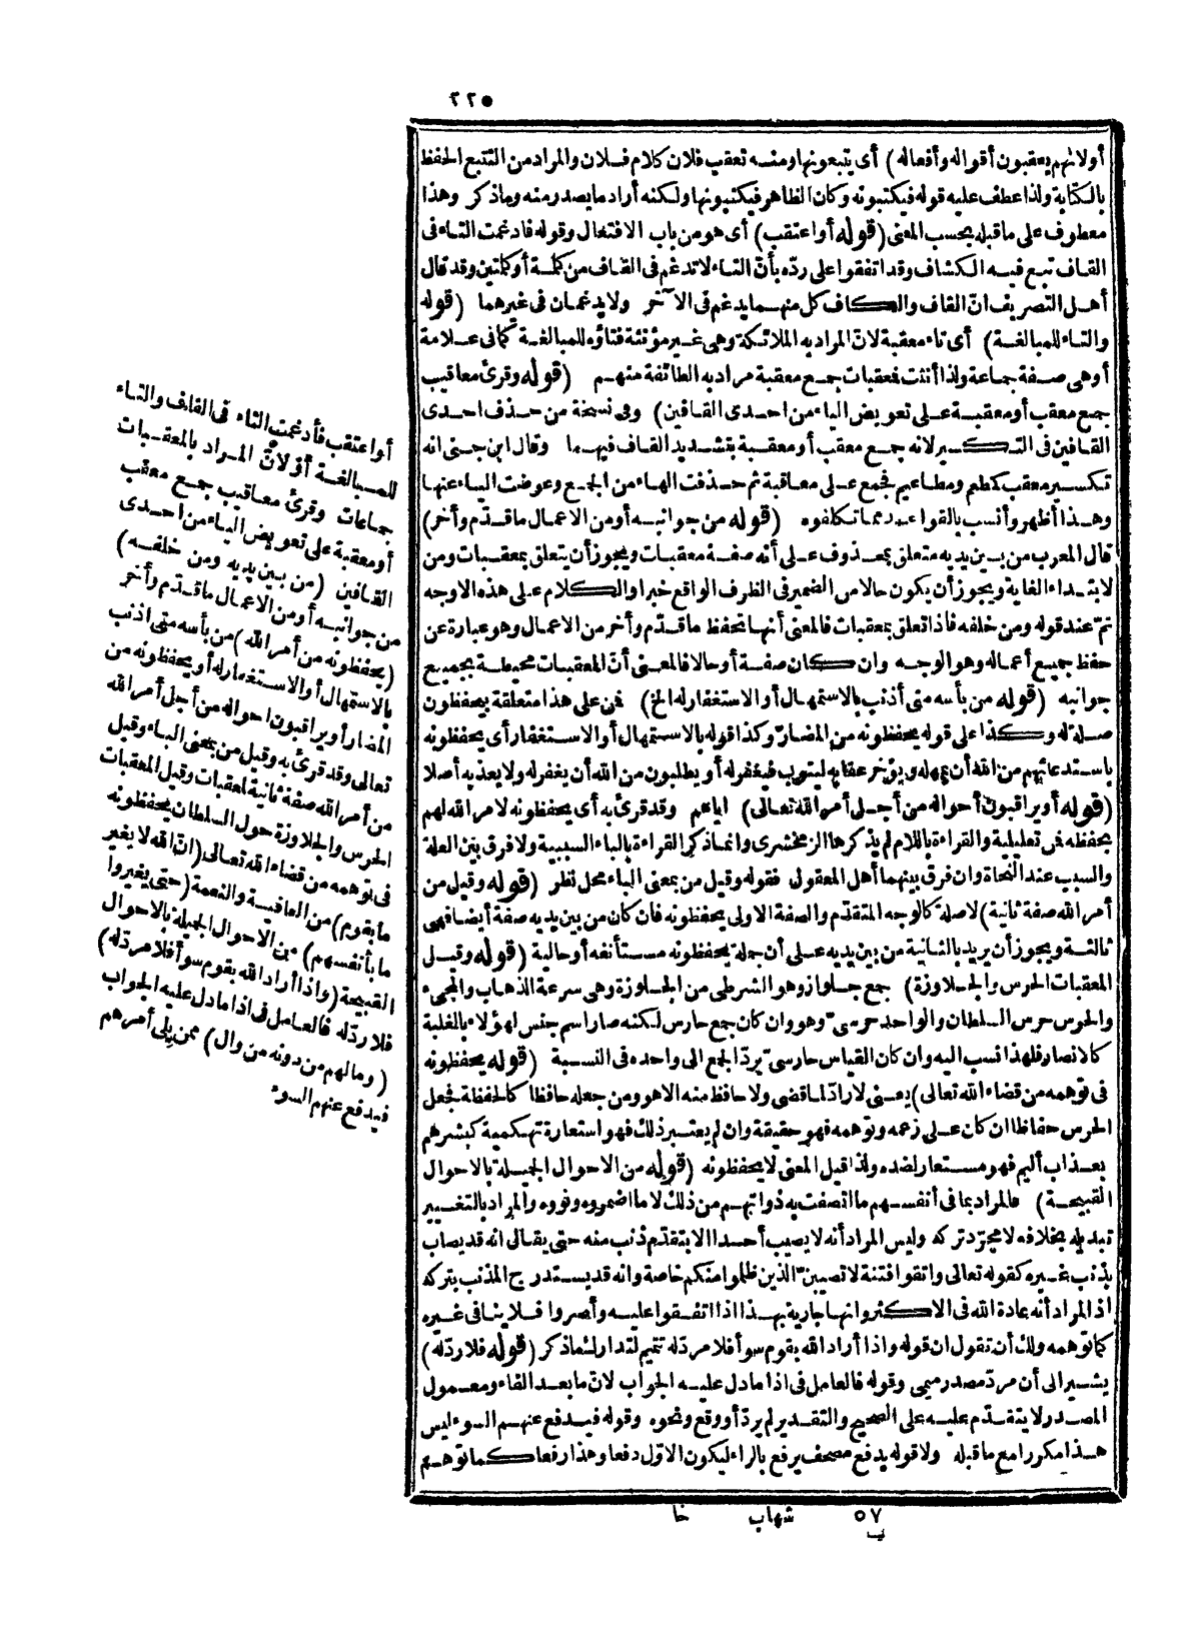 ٢٢٥
أولانهم يعقبون أقواله وأفعاله) أى يتبعونها ومنه تعقب فلان كلام فلان والمراد من التتبع الحفظ
بالكتابة ولذا عطف عليه قوله فيكتبونه وكان الظاهر فيكتبونها ولكنه أراد ما يصدر منه وما ذكر وهذا
معطوف على ما قبله بحسب المعنى (قوله أو اعتقب) أى هو من باب الافتعال وقوله فادغمت التاء فى
القاف تبع فيه الكشاف وقد اتفقوا على ردّه بأنّ التاء لا تدغم فى القاف من كلمة أو كلمتين وقد قال
أهل التصريف انّ القاف والكاف كل منهما يدغم فى الآخر ولا يدغمان فى غيرهما (قوله
والتاء للمبالغة) أى تاء معقبة لانّ المراد به الملائكة وهى غير مؤنثة فتاؤه للمبالغة كما فى علامة
أو هى صفة جماعة ولذا أنثت فعقبات جمع معقبة مراد به الطائفة منهم (قوله وقرئ معاقيب
جمع معقب أو معقبة على تعويض الياء من احدى القافين) وفى نسخة من حذف احدى
القافين فى التكسير لانه جمع معقب أو معقبة بتشديد القاف فيهما وقال ابن جنى انه
تكسير معقب كمطعم ومطاعيم فجمع على معاقبة ثم حذفت الهاء من الجمع وعوضت الياء عنها
وهذا أظهر وأنسب بالقواعد مما تكلفوه (قوله من جوانبه أو من الاعمال ما قدّم وأخر)
قال المعرب من بين يديه متعلق بمحذوف على أنه صفة معقبات ويجوز أن يتعلق بمعقبات ومن
لابتداء الغاية ويجوز أن يكون حالا من الضمير فى الظرف الواقع خبرا والكلام على هذه الاوجه
تمّ عند قوله ومن خلفه فاذا تعلق بمعقبات فالمعنى أنها تحفظ ما قدّم وأخر من الاعمال وهو عبارة عن
حفظ جميع أعماله وهو الوجه وان كان صفة أو حالا فالمعنى أنّ المعقبات محيطة بجميع
جوانبه (قوله من بأسه متى أذنب بالاستمهال أو الاستغفار له الخ) فمن على هذا متعلقة بيحفظون
صلة له وكذا على قوله يحفظونه من المضارّ وكذا قوله بالاستمهال أو الاستغفار أى يحفظونه
باستدعائهم من الله أن يمهله ويؤخر عقابه ليتوب فيغفر له أو يطلبون من الله أن يغفر له ولا يعذبه أصلا
(قوله أو يراقبون أحواله من أجل أمر الله تعالى) اياهم وقد قرئ به أى يحفظونه لامر الله لهم
بحفظه فمن تعليلية والقراءة باللام لم يذكرها الزمخشرى وانما ذكر القراءة بالباء السببية ولا فرق بين العلة
والسبب عند النحاة وان فرق بينهما أهل المعقول فقوله وقيل من بمعنى الباء محل نظر (قوله وقيل من
أمر الله صفة ثانية) لاصلة كالوجه المتقدّم والصفة الاولى يحفظونه فان كان من بين يديه صفة أيضا فهى
ثالثة ويجوز أن يريد بالثانية من بين يديه على أن جملة يحفظونه مستأنفه أو حالية (قوله وقيل
المعقبات الحرس والجلاوزة) جمع جلواز وهو الشرطى من الجلوزة وهى سرعة الذهاب والمجىء
والحرس حرس السلطان والواحد حرسىّ وهو وان كان جمع حارس لكنه صار اسم جنس لهؤلاء بالغلبة
كالانصار فلهذا نسب اليه وان كان القياس حارسىّ بردّ الجمع الى واحده فى النسبة (قوله يحفظونه
فى توهمه من قضاء الله تعالى) يعنى لا رادّ لما قضى ولا حافظ منه الا هو ومن جعله حافظا كالحفظة فجعل
الحرس حفاظا ان كان على زعمه وتوهمه فهو حقيقة وان لم يعتبر ذلك فهو استعارة تهكمية كبشرهم
بعذاب أليم فهو مستعار لضده ولذا قيل المعنى لا يحفظونه (قوله من الاحوال الجميلة بالاحوال
القبيحة) فالمراد بما فى أنفسهم ما اتصفت به ذواتهم من ذلك لا ما اضمروه ونووه والمراد بالتغيير
تبديله بخلافه لا مجرّد تركه وليس المراد أنه لا يصيب أحدا الا بتقدّم ذنب منه حتى يقال انه قد يصاب
بذنب غيره كقوله تعالى واتقوا فتنة لا تصيبنّ الذين ظلموا منكم خاصة وانه قد يستدرج المذنب بتركه
اذ المراد أنه عادة الله فى الاكثر وانها جارية بهذا اذا اتفقوا عليه وأصروا فلا ينافى غيره
كما توهمه ولك أن تقول ان قوله واذا أراد الله بقوم سوأ فلا مردّ له تتميم لتدارك ما ذكر (قوله فلا ردّ له)
يشير الى أن مردّ مصدر ميمى وقوله فالعامل فى اذا ما دل عليه الجواب لانّ ما بعد الفاء ومعمول
المصدر لا يتقدّم عليه على الصحيح والتقدير لم يردّ أو وقع ونحوه وقوله فيدفع عنهم السوء ليس
هذا مكررا مع ما قبله ولا قوله يدفع مصحف يرفع بالراء ليكون الاوّل دفعا وهذا رفعا كما توهم
أو اعتقب فأدغمت التاء فى القاف والتاء
للمبالغة أو لانّ المراد بالمعقبات
جماعات وقرئ معاقيب جمع معقب
أو معقبة على تعويض الياء من احدى
القافين (من بين يديه ومن خلفه)
من جوانبه أو من الاعمال ما قدّم وأخر
(يحفظونه من أمر الله) من بأسه متى اذنب
بالاستمهال أو الاستغفار له أو يحفظونه من
المضار أو يراقبون احواله من أجل أمر الله
تعالى وقد قرئ به وقيل من بمعنى الباء وقيل
من أمر الله صفة ثانية لمعقبات وقيل المعقبات
الحرس والجلاوزة حول السلطان يحفظونه
فى توهمه من قضاء الله تعالى (انّ الله لا يغير
ما بقوم) من العافية والنعمة (حتى يغيروا
ما بأنفسهم) من الاحوال الجميلة بالاحوال
القبيحة (واذا أراد الله بقوم سوأ فلا مردّ له)
فلا ردّ له فالعامل فى اذا ما دل عليه الجواب
(وما لهم من دونه من وال) ممن يلى أمرهم
فيدفع عنهم السوء
٥٧ شهاب خا
ب